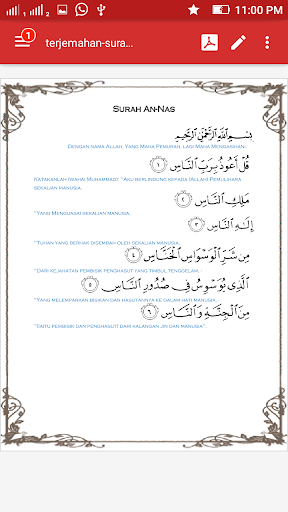 1
2
11:00 PM
1
terjemahan-sura...
SURAH AN-NAS
بِسْمِ اللَّهِ الرَّحْمَٰنِ الرَّحِيمِ
DENGAN NAMA ALLAH, YANG MAHA PEMURAH, LAGI MAHA MENGASIHANI.
قُلْ أَعُوذُ بِرَبِّ النَّاسِ ١
KATAKANLAH (WAHAI MUHAMMAD): "AKU BERLINDUNG KEPADA (ALLAH) PEMULIHARA
SEKALIAN MANUSIA.
مَلِكِ النَّاسِ ٢
"YANG MENGUASAI SEKALIAN MANUSIA,
إِلَٰهِ النَّاسِ ٣
"TUHAN YANG BERHAK DISEMBAH OLEH SEKALIAN MANUSIA,
مِن شَرِّ الْوَسْوَاسِ الْخَنَّاسِ ٤
"DARI KEJAHATAN PEMBISIK PENGHASUT YANG TIMBUL TENGGELAM,-
الَّذِي يُوَسْوِسُ فِي صُدُورِ النَّاسِ ٥
"YANG MELEMPARKAN BISIKAN DAN HASUTANNYA KE DALAM HATI MANUSIA,-
مِنَ الْجِنَّةِ وَالنَّاسِ ٦
"(IAITU PEMBISIK DAN PENGHASUT) DARI KALANGAN JIN DAN MANUSIA".